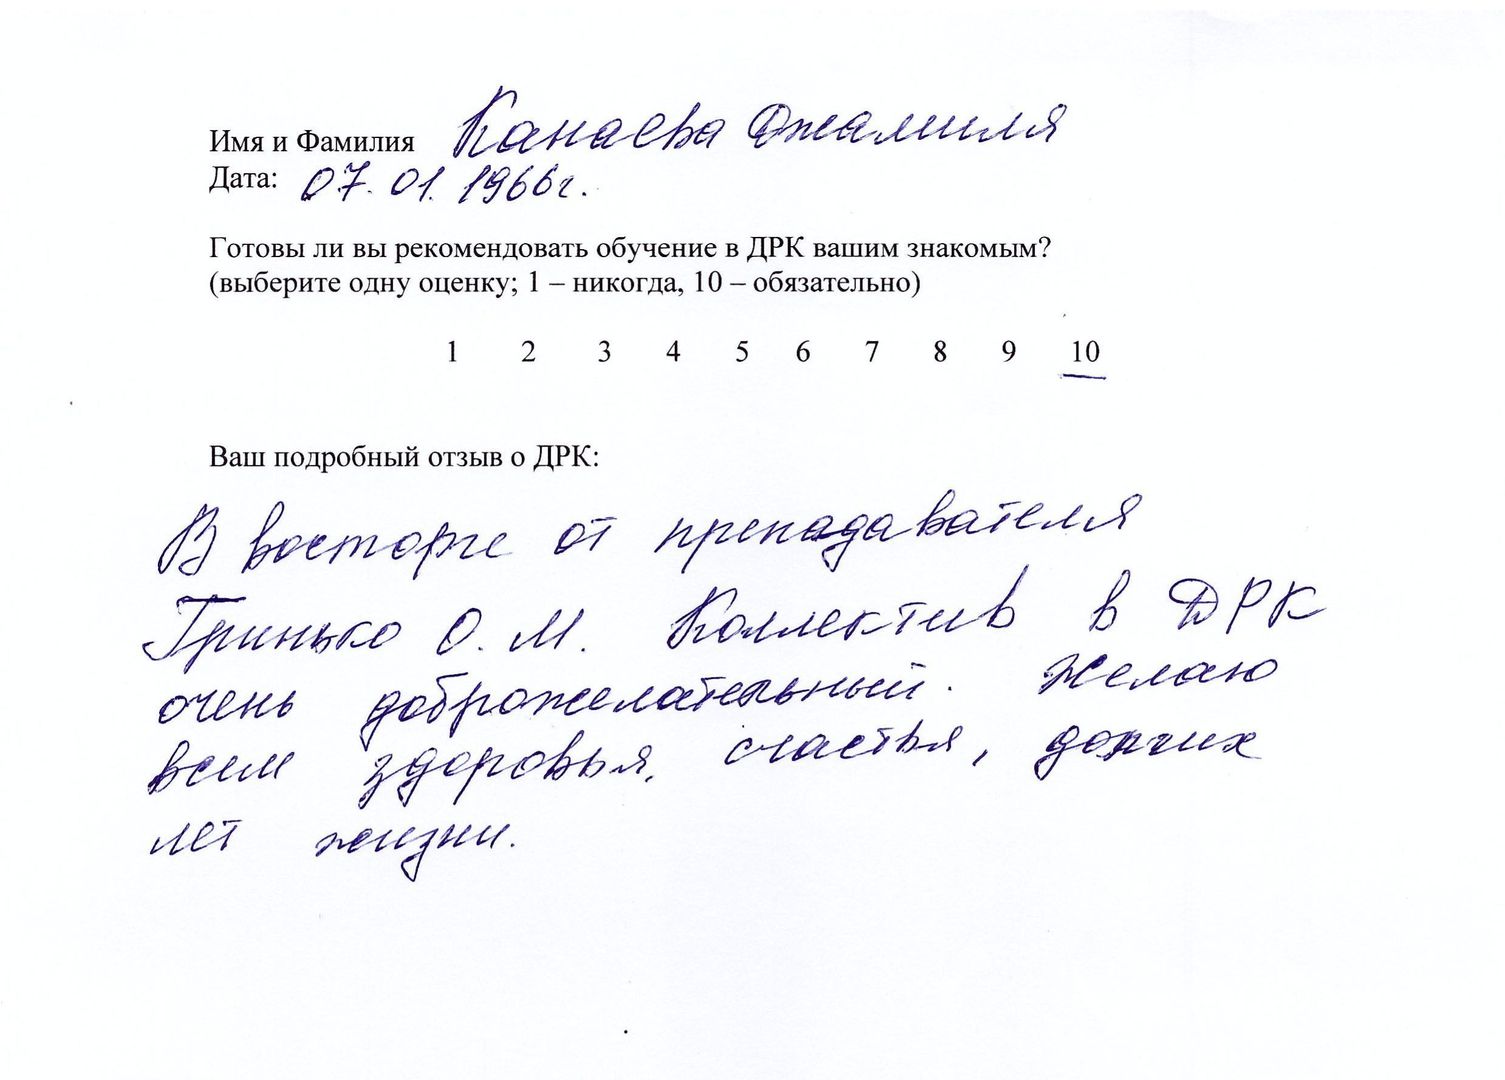 Имя и Фамилия Канаева Джамиля
Дата: 07.01.1966г.
Готовы ли вы рекомендовать обучение в ДРК вашим знакомым?
(выберите одну оценку; 1 – никогда, 10 – обязательно)
1 2 3 4 5 6 7 8 9 10
Ваш подробный отзыв о ДРК:
В восторге от препадавателя
Гринько О. М. Коллектив в ДРК
очень доброжелательный. Желаю
всем здоровья, счастья, долгих
лет жизни.